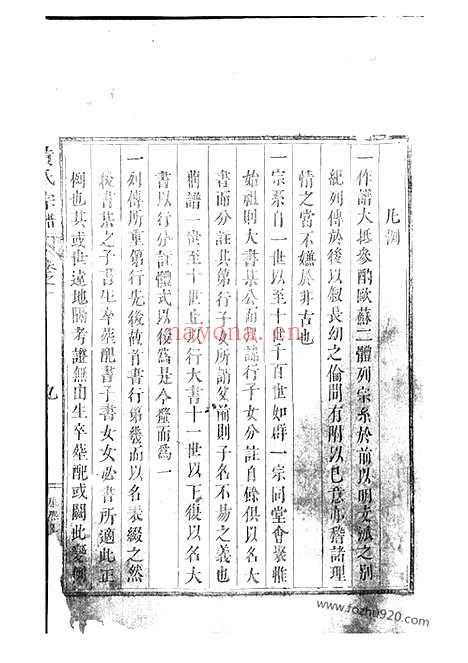 凡例
一作譜大抵參酌歐蘇二體列宗系於前以明支派之別
紀列傳於後以敘長幼之倫間有附以己意亦籌諸理
情之當不嫌於非古也
一宗系自一世以至十世千百世如群一宗同堂會聚惟
始祖則大書某公而諱行子女分註自餘俱以名大
書而分註其第行子女所謂父前則子名不易之義也
舊譜一世至十世止行大書十一世以下復以名大
書以行分註體式以後為是今釐而為一
一列傳所重第行先後故首書行第幾而以名表綴之然
後書某之子書生卒葬配書子書女女必書所適此正
例也其或世遠地隔考證無由生卒葬配或闕此變例
氏宗譜 卷之一
九
nayona.cn
www.fozhu920.com